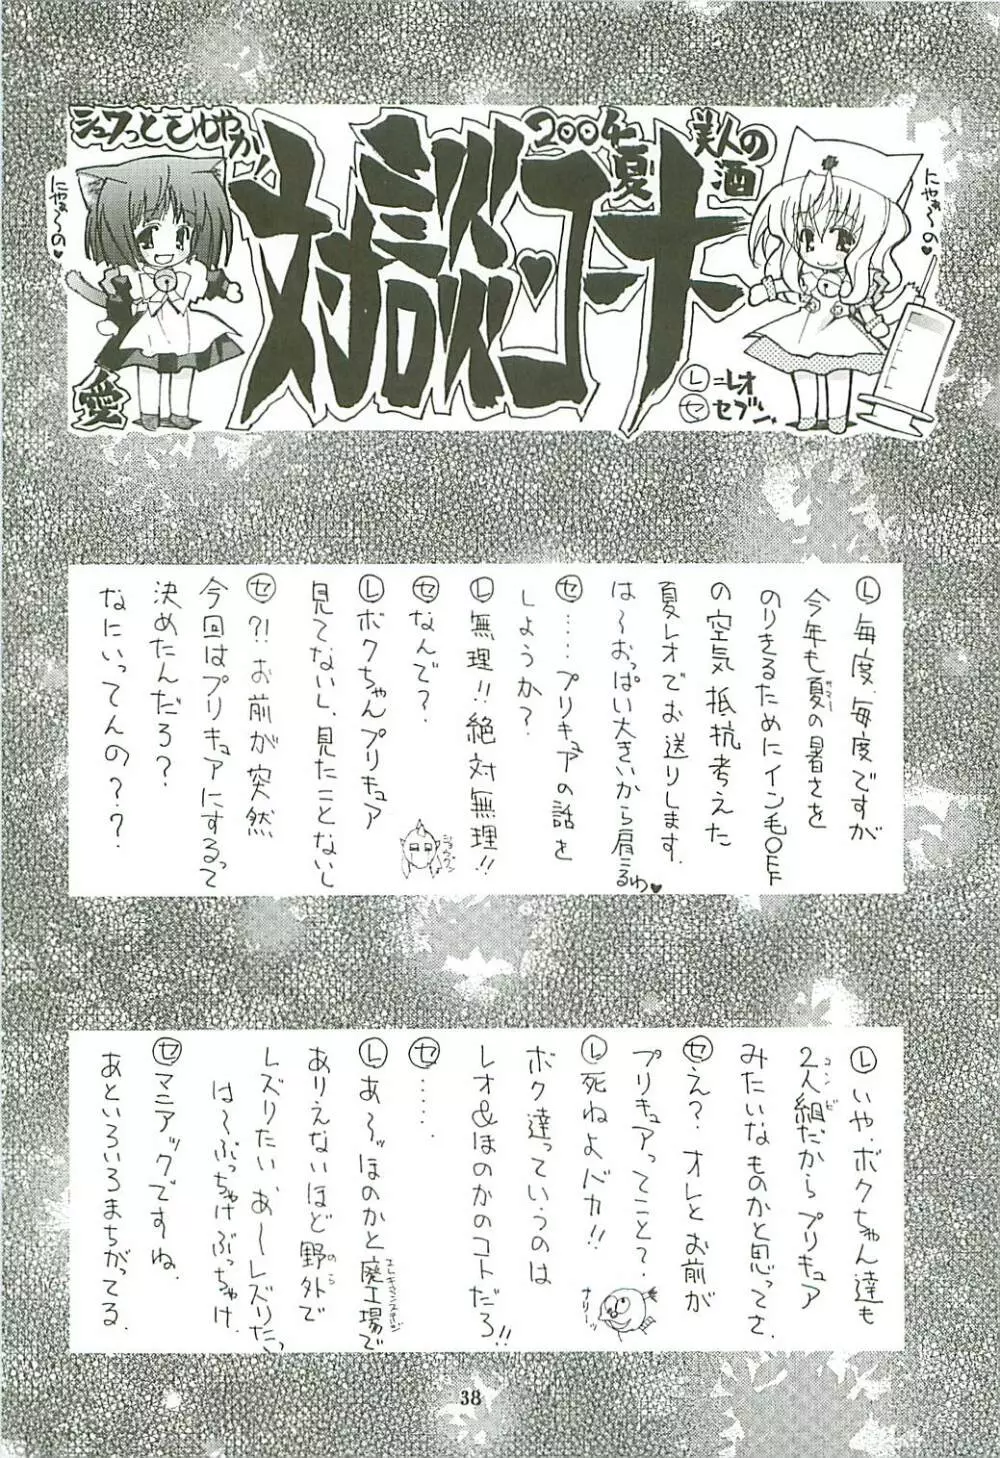 シュワっとさわやか!
対談コーナー
2004夏
美人の酒
にゃぁ〜の♥
にゃぁ〜の♥
愛
Ⓛ=レオ
セ=セブン
Ⓛ毎度、毎度ですが
今年も夏の暑さを
のりきるためにイン毛OFF
の空気抵抗考えた
夏レオでお送りします。
は〜おっぱい大きいから肩こるわ♥
セ……プリキュアの話を
しようか?
Ⓛ無理!!絶対無理!!
セなんで?
Ⓛボクちゃんプリキュア
見てないし、見たことないし
セ?!お前が突然
今回はプリキュアにするって
決めたんだろ?
なにいってんの??
Ⓛいや、ボクちゃん達も
2人組だからプリキュア
コンビ
みたいなものかと思ってさ
セえ?オレとお前が
プリキュアってこと?
Ⓛ死ねよバカ!!
ナリーッ
ボク達っていうのは
レオ&ほのかのコトだろ!!
セ……
Ⓛあ〜ッほのかと廃工場で
ありえないほど野外で
のら
レズりたい、あ〜レズりたい
は〜ぶっちゃけぶっちゃけ
セマニアックですね。
あといろいろまちがってる。
38